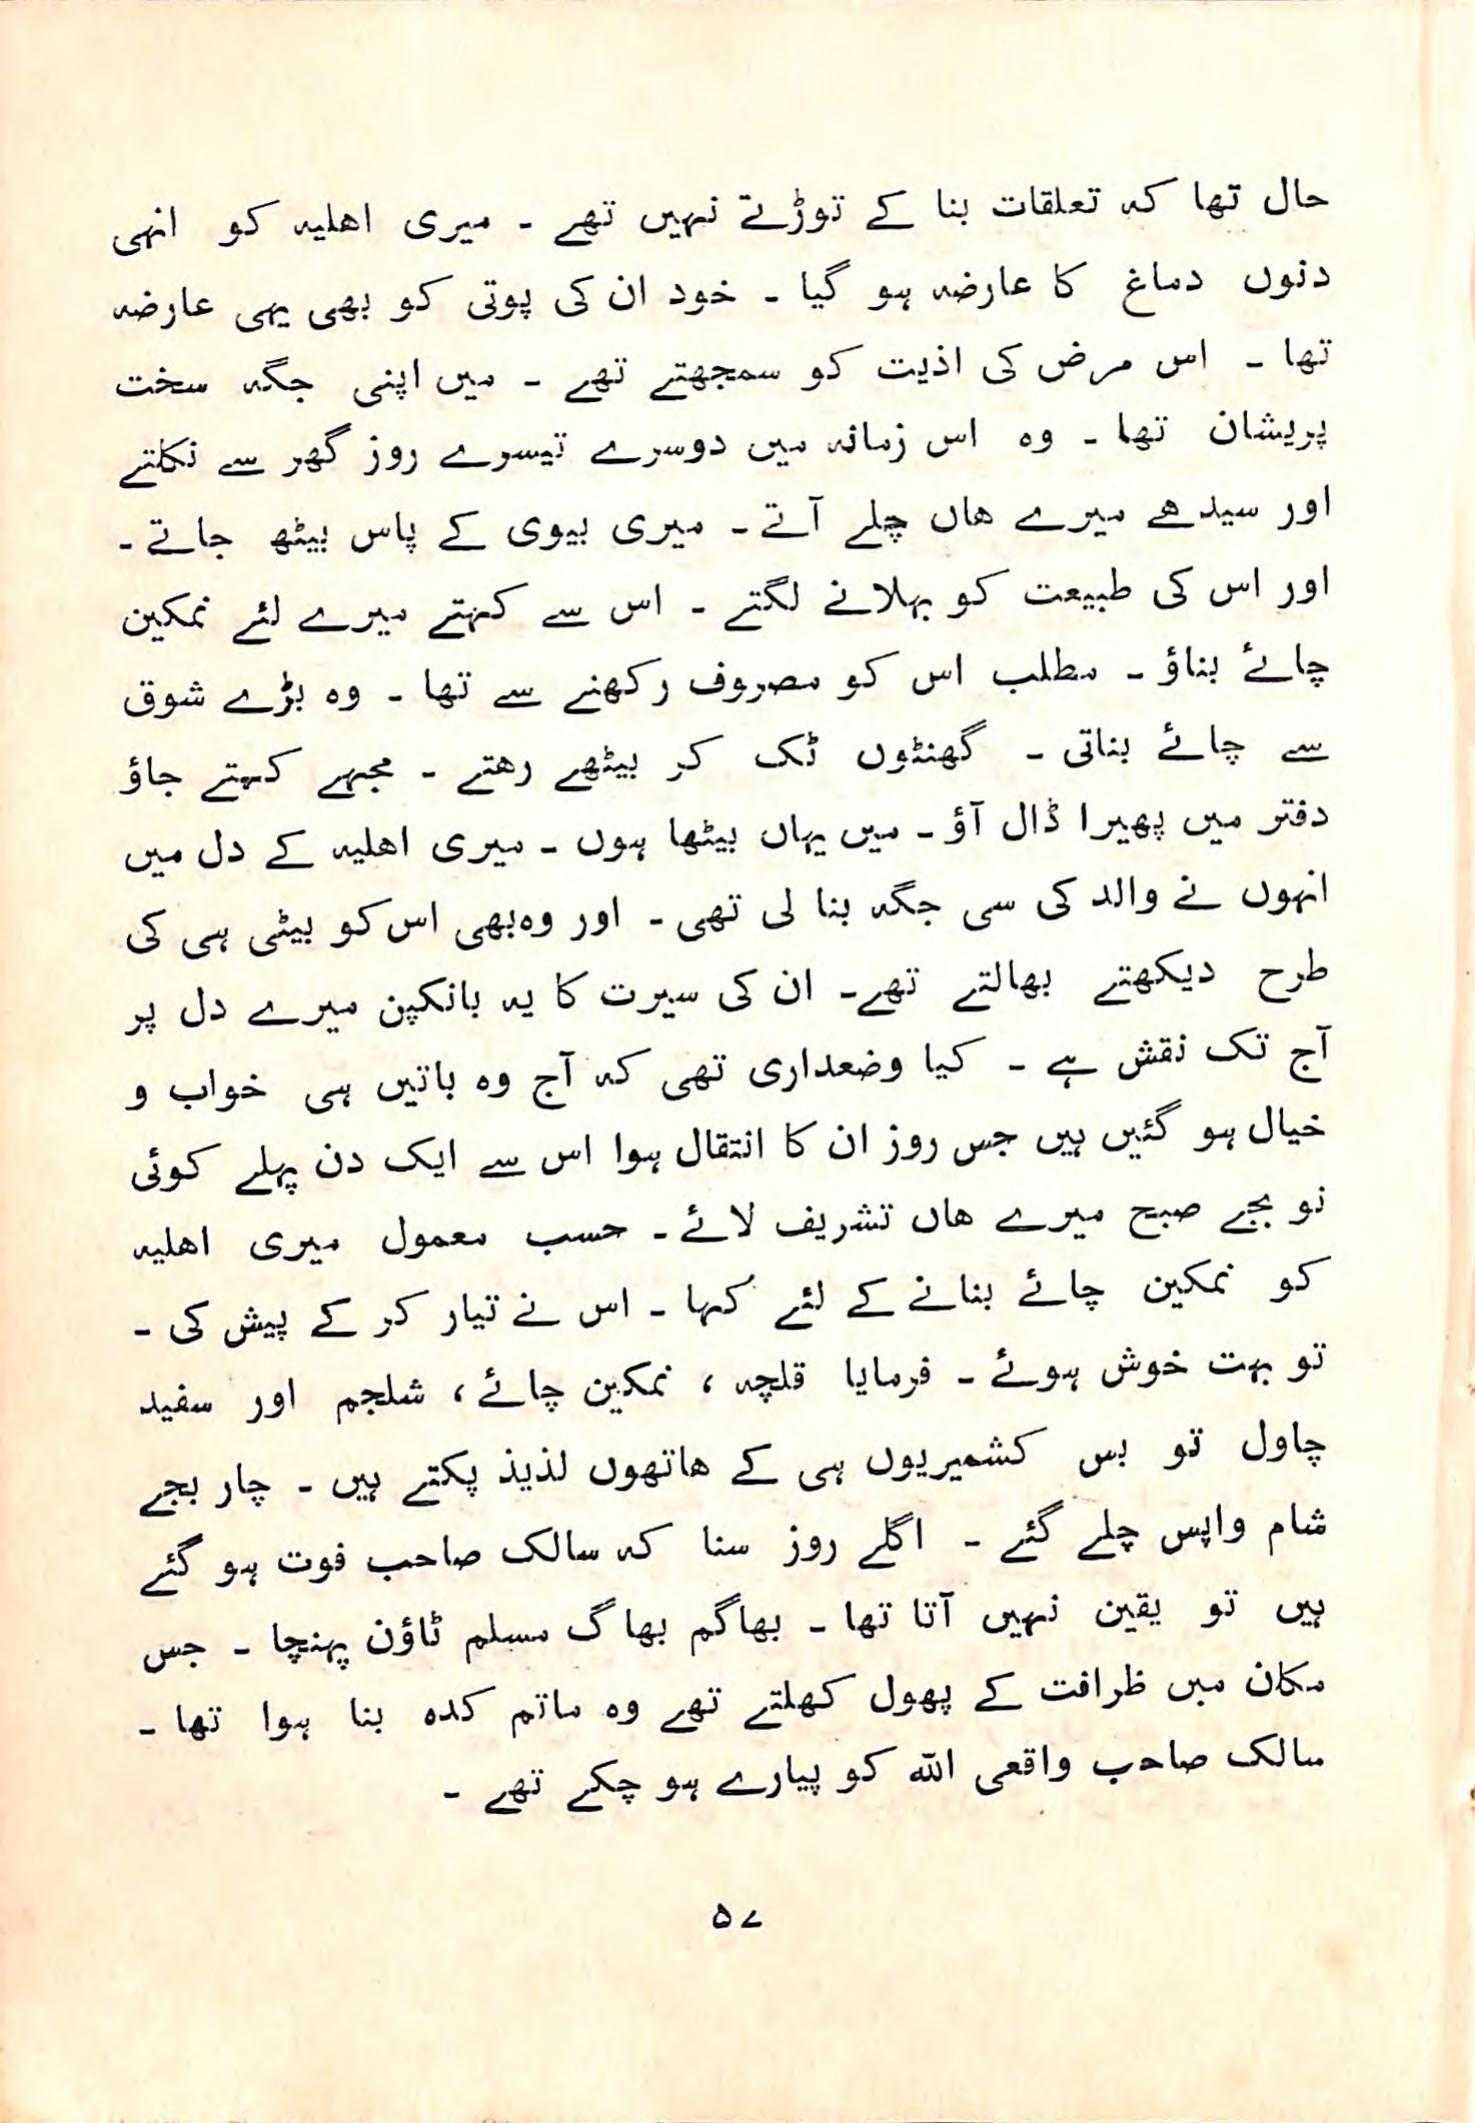 حال تھا کہ تعلقات بنا کے توڑتے نہیں تھے ۔ میری اھلیہ کو انہی
دنوں دماغ کا عارضہ ہو گیا ۔ خود ان کی پوتی کو بھی یہی عارضہ
تھا ۔ اس مرض کی اذیت کو سمجھتے تھے ۔ میں اپنی جگہ سخت
پریشان تھا ۔ وہ اس زمانہ میں دوسرے تیسرے روز گھر سے نکلتے
اور سیدھے میرے ھاں چلے آتے ۔ میری بیوی کے پاس بیٹھ جاتے ۔
اور اس کی طبیعت کو بہلانے لگتے ۔ اس سے کہتے میرے لئے نمکین
چائے بناؤ ۔ مطلب اس کو مصروف رکھنے سے تھا ۔ وہ بڑے شوق
سے چائے بناتی ۔ گھنٹوں ٹک کر بیٹھے رھتے ۔ مجھے کہتے جاؤ
دفتر میں پھیرا ڈال آؤ ۔ میں یہاں بیٹھا ہوں ۔ میری اھلیہ کے دل میں
انہوں نے والد کی سی جگہ بنا لی تھی ۔ اور وہ بھی اس کو بیٹی ہی کی
طرح دیکھتے بھالتے تھے ۔ ان کی سیرت کا یہ بانکپن میرے دل پر
آج تک نقش ہے ۔ کیا وضعداری تھی کہ آج وہ باتیں ہی خواب و
خیال ہو گئیں ہیں جس روز ان کا انتقال ہوا اس سے ایک دن پہلے کوئی
نو بجے صبح میرے ھاں تشریف لائے ۔ حسب معمول میری اھلیہ
کو نمکین چائے بنانے کے لئے کہا ۔ اس نے تیار کر کے پیش کی ۔
تو بہت خوش ہوئے ۔ فرمایا قلچہ ، نمکین چائے ، شلجم اور سفید
چاول تو بس کشمیریوں ہی کے ھاتھوں لذیذ پکتے ہیں ۔ چار بجے
شام واپس چلے گئے ۔ اگلے روز سنا کہ سالک صاحب فوت ہو گئے
ہیں تو یقین نہیں آتا تھا ۔ بھاگم بھاگ مسلم ٹاؤن پہنچا ۔ جس
مکان میں ظرافت کے پھول کھلتے تھے وہ ماتم کدہ بنا ہوا تھا ۔
سالک صاحب واقعی اللہ کو پیارے ہو چکے تھے ۔
۵۷